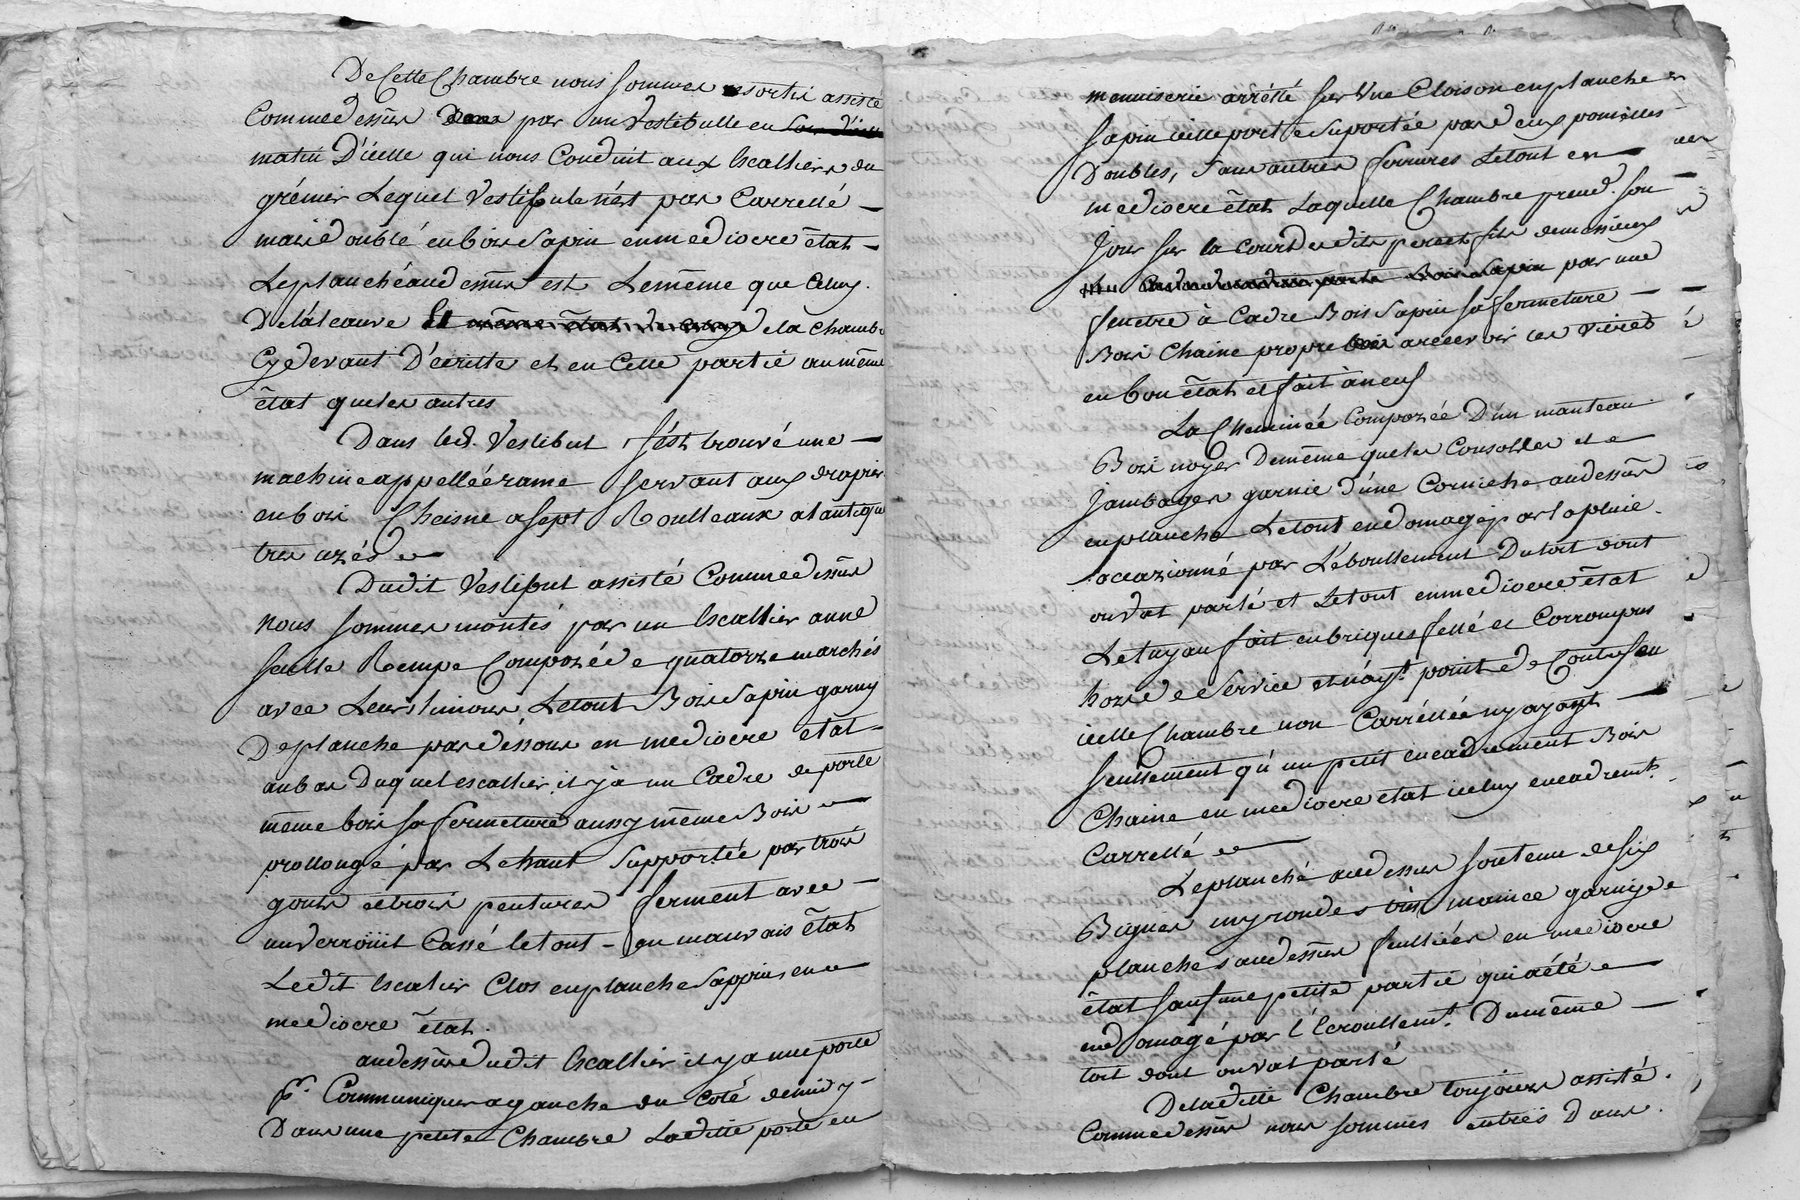 De Cette Chambre nous sommes resortis assisté
Comme dessus par un Vestibulle en
matin D'icelle qui nous Conduit aux Escalliers du
grénier Lequel Vestibule n'ést pas Carrellé —
mais doublé en bois Sapin en mediocre état —
Le planché au dessus est Le même que Celuy.
De la de la Chambre
Cy devant D'écritte et en Cette partie au même
êtat que les autres
Dans led. Vestibul s'ést trouvé une —
machine appellée rame servant aux drapiers
en bois Chaisne a sept Roulleaux a l'antique
tres uzéé
Dudit Vestibul assisté Comme dessus
nous sommes montés par un Escallier a une
seulle Rempe Composée de quatorze marchés
avec Leurs limons Le tout Bois Sapin garny
De planche par déssous en mediocre etat —
au bas Duquel escallier il y a un Cadre de porte
même bois sa fermeture aussy même Bois
prollongé par Le haut Supportéé par trois
gonts et trois pentures ferment avec —
un verrouit Cassé le tout - en mauvais état
Ledit Escalier Clos en planche Sappins en
mediocre état.
au dessus dudit Escallier il y a une porte
pr. Communiquer a gauche du Coté de midy —
Dans une petite Chambre Laditte porte en
menuiserie arrétté sur Une Cloison en planche
Sapin icelle porte Suportée par deux pomelles
Doubles, Sans autres ferrures Le tout en
mediocre êtat Laquelle Chambre prend son
Jour sur la Cour desdits pere et fils demessieux
par une
fenetre à Cadre Bois Sapin sa fermeture —
Bois Chaine propre a recevoir les Vitres
en bon êtat et fait à neuf
La Cheminéé Composée D'un manteau
Bois noyer De même que les Consolles et
Jambages garnie d'une Corniche au dessus
en planche Le tout endomagé par la pluie
occazionné par L'éboullement Du toit dont
on vat parlé et Le tout en mediocre état
Le tuyau fait en briques fellé et Corrompus
hors de Service et n'ayt. point de Contrefeu
icelle Chambre non Carréllée n'y ayant —
seullement qu'un petit encadrement Bois
Chaine en mediocre état iceluy encadremt.
Carrellé
Le planché au dessus soutenu de six
planches au dessus feulliées en mediocre
état sauf une petite partie qui a été
endomagé par l'écroullemt. Du même —
toit dont on vat parlé
De la ditte Chambre toujours assisté.
Comme dessus nous sommes entrés Dans.